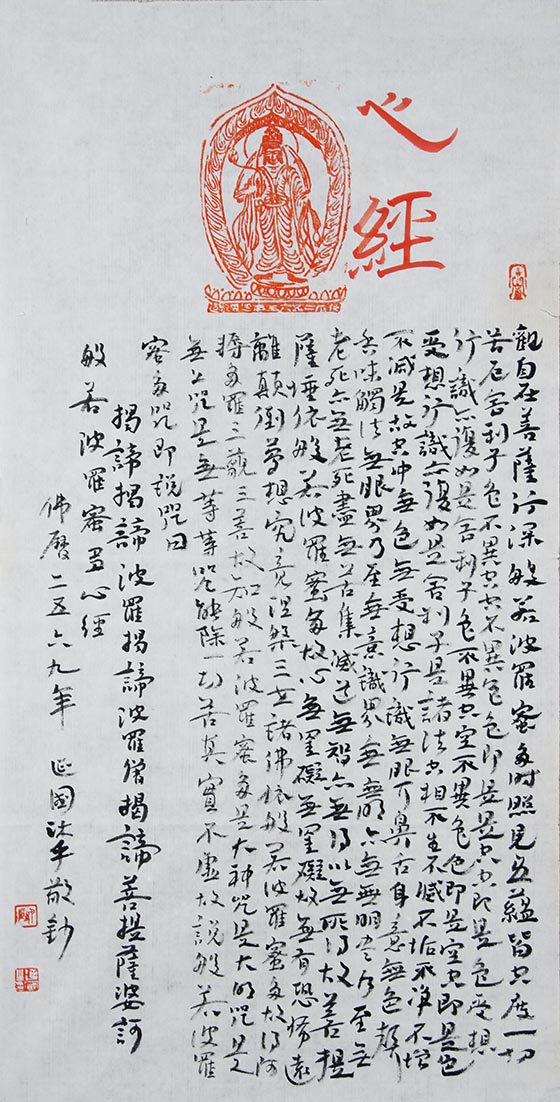 心經
觀自在菩薩行深般若波羅蜜多時照見五蘊皆空度一切
苦厄舍利子色不異空空不異色色即是空空即是色受想
行識亦復如是舍利子色不異空空不異色色即是空空即是色
受想行識亦復如是舍利子是諸法空相不生不滅不垢不淨不增
不減是故空中無色無受想行識無眼耳鼻舌身意無色聲
香味觸法無眼界乃至無意識界無無明亦無無明盡乃至無
老死亦無老死盡無苦集滅道無智亦無得以無所得故菩提
薩埵依般若波羅蜜多故心無罣礙無罣礙故無有恐怖遠
離顛倒夢想究竟涅槃三世諸佛依般若波羅蜜多故得阿
耨多羅三藐三菩故知般若波羅蜜多是大神咒是大明咒是
無上咒是無等等咒能除一切苦真實不虛故說般若波羅
蜜多咒即說咒曰
揭諦揭諦波羅揭諦波羅僧揭諦菩提薩婆訶
般若波羅蜜多心經
佛曆二五六九年 延國沐手敬鈔